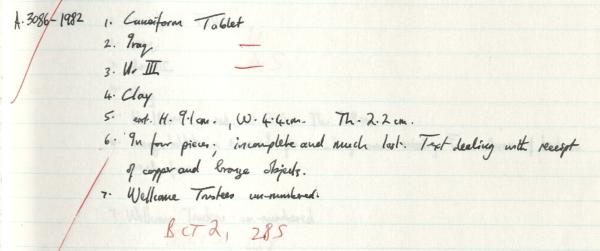 A.3086-1982 1. Cuneiform Tablet
2. Iraq
3. Ur III
4. Clay
5. ext. H. 9.1cm., W. 4.4cm. Th. 2.2cm.
6. In four pieces, incomplete and much lost. Text dealing with receipt
of copper and bronze objects.
7. Wellcome Trustees un-numbered.
BCT2, 285